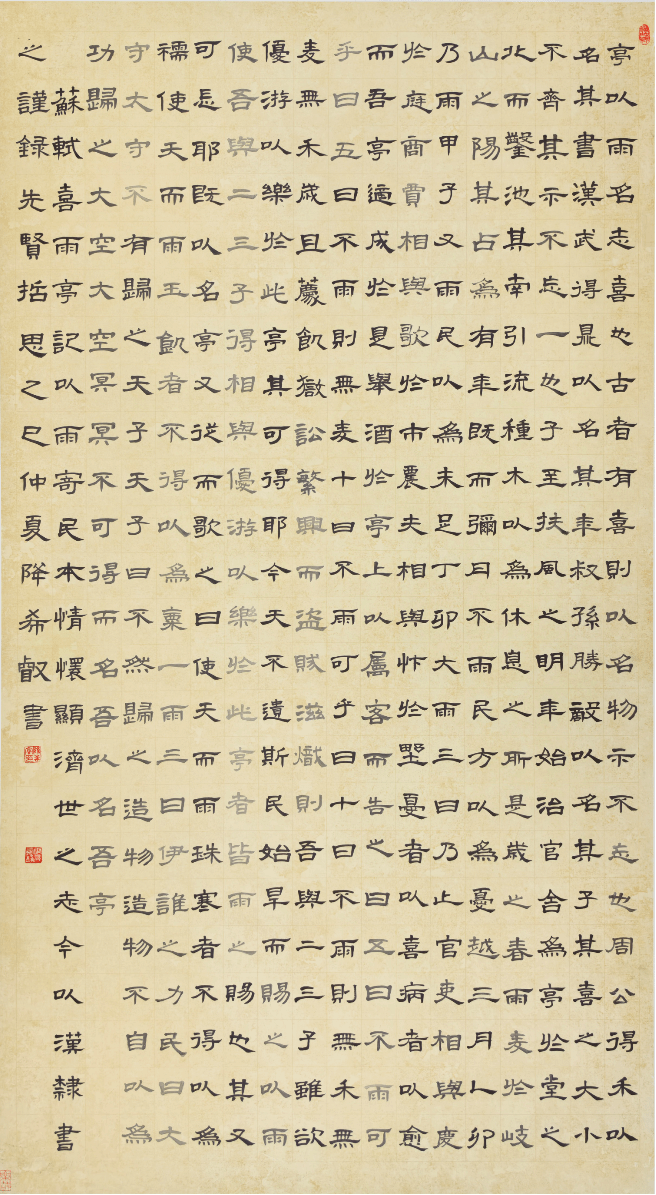 亭以雨名志喜也古者有喜則以名物示不忘也周公得禾以
名其書漢武得鼎以名其年叔孫勝敵以名其子其喜之大小
不齊其示不忘一也予至扶風之明年始治官舍為亭於堂之
北而鑿池其南引流種木以為休息之所是歲之春雨麥於岐
山之陽其占為有年既而彌月不雨民方以為憂越三月乙卯
乃雨甲子又雨民以為未足丁卯大雨三日乃止官吏相與慶
於庭商賈相與歌於市農夫相與忭於野憂者以喜病者以愈
而吾亭適成於是舉酒於亭上以屬客而告之曰五日不雨可
乎曰五日不雨則無麥十日不雨可乎曰十日不雨則無禾無
麥無禾歲且薦飢獄訟繁興而盜賊滋熾則吾與二三子雖欲
優游以樂於此亭其可得耶今天不遺斯民始旱而賜之以雨
使吾與二三子得相與優游以樂於此亭者皆雨之賜也其又
可忘耶既以名亭又從而歌之曰使天而雨珠寒者不得以為
襦使天而雨玉飢者不得以為粟一雨三日伊誰之力民曰大
守大守不有歸之天子天子曰不然歸之造物造物不自以為
功歸之大空大空冥冥不可得而名吾以名吾亭
蘇軾喜雨亭記以雨寄民本情懷顯濟世之志今以漢隸書
之謹錄先賢括思乙巳仲夏降希叡書